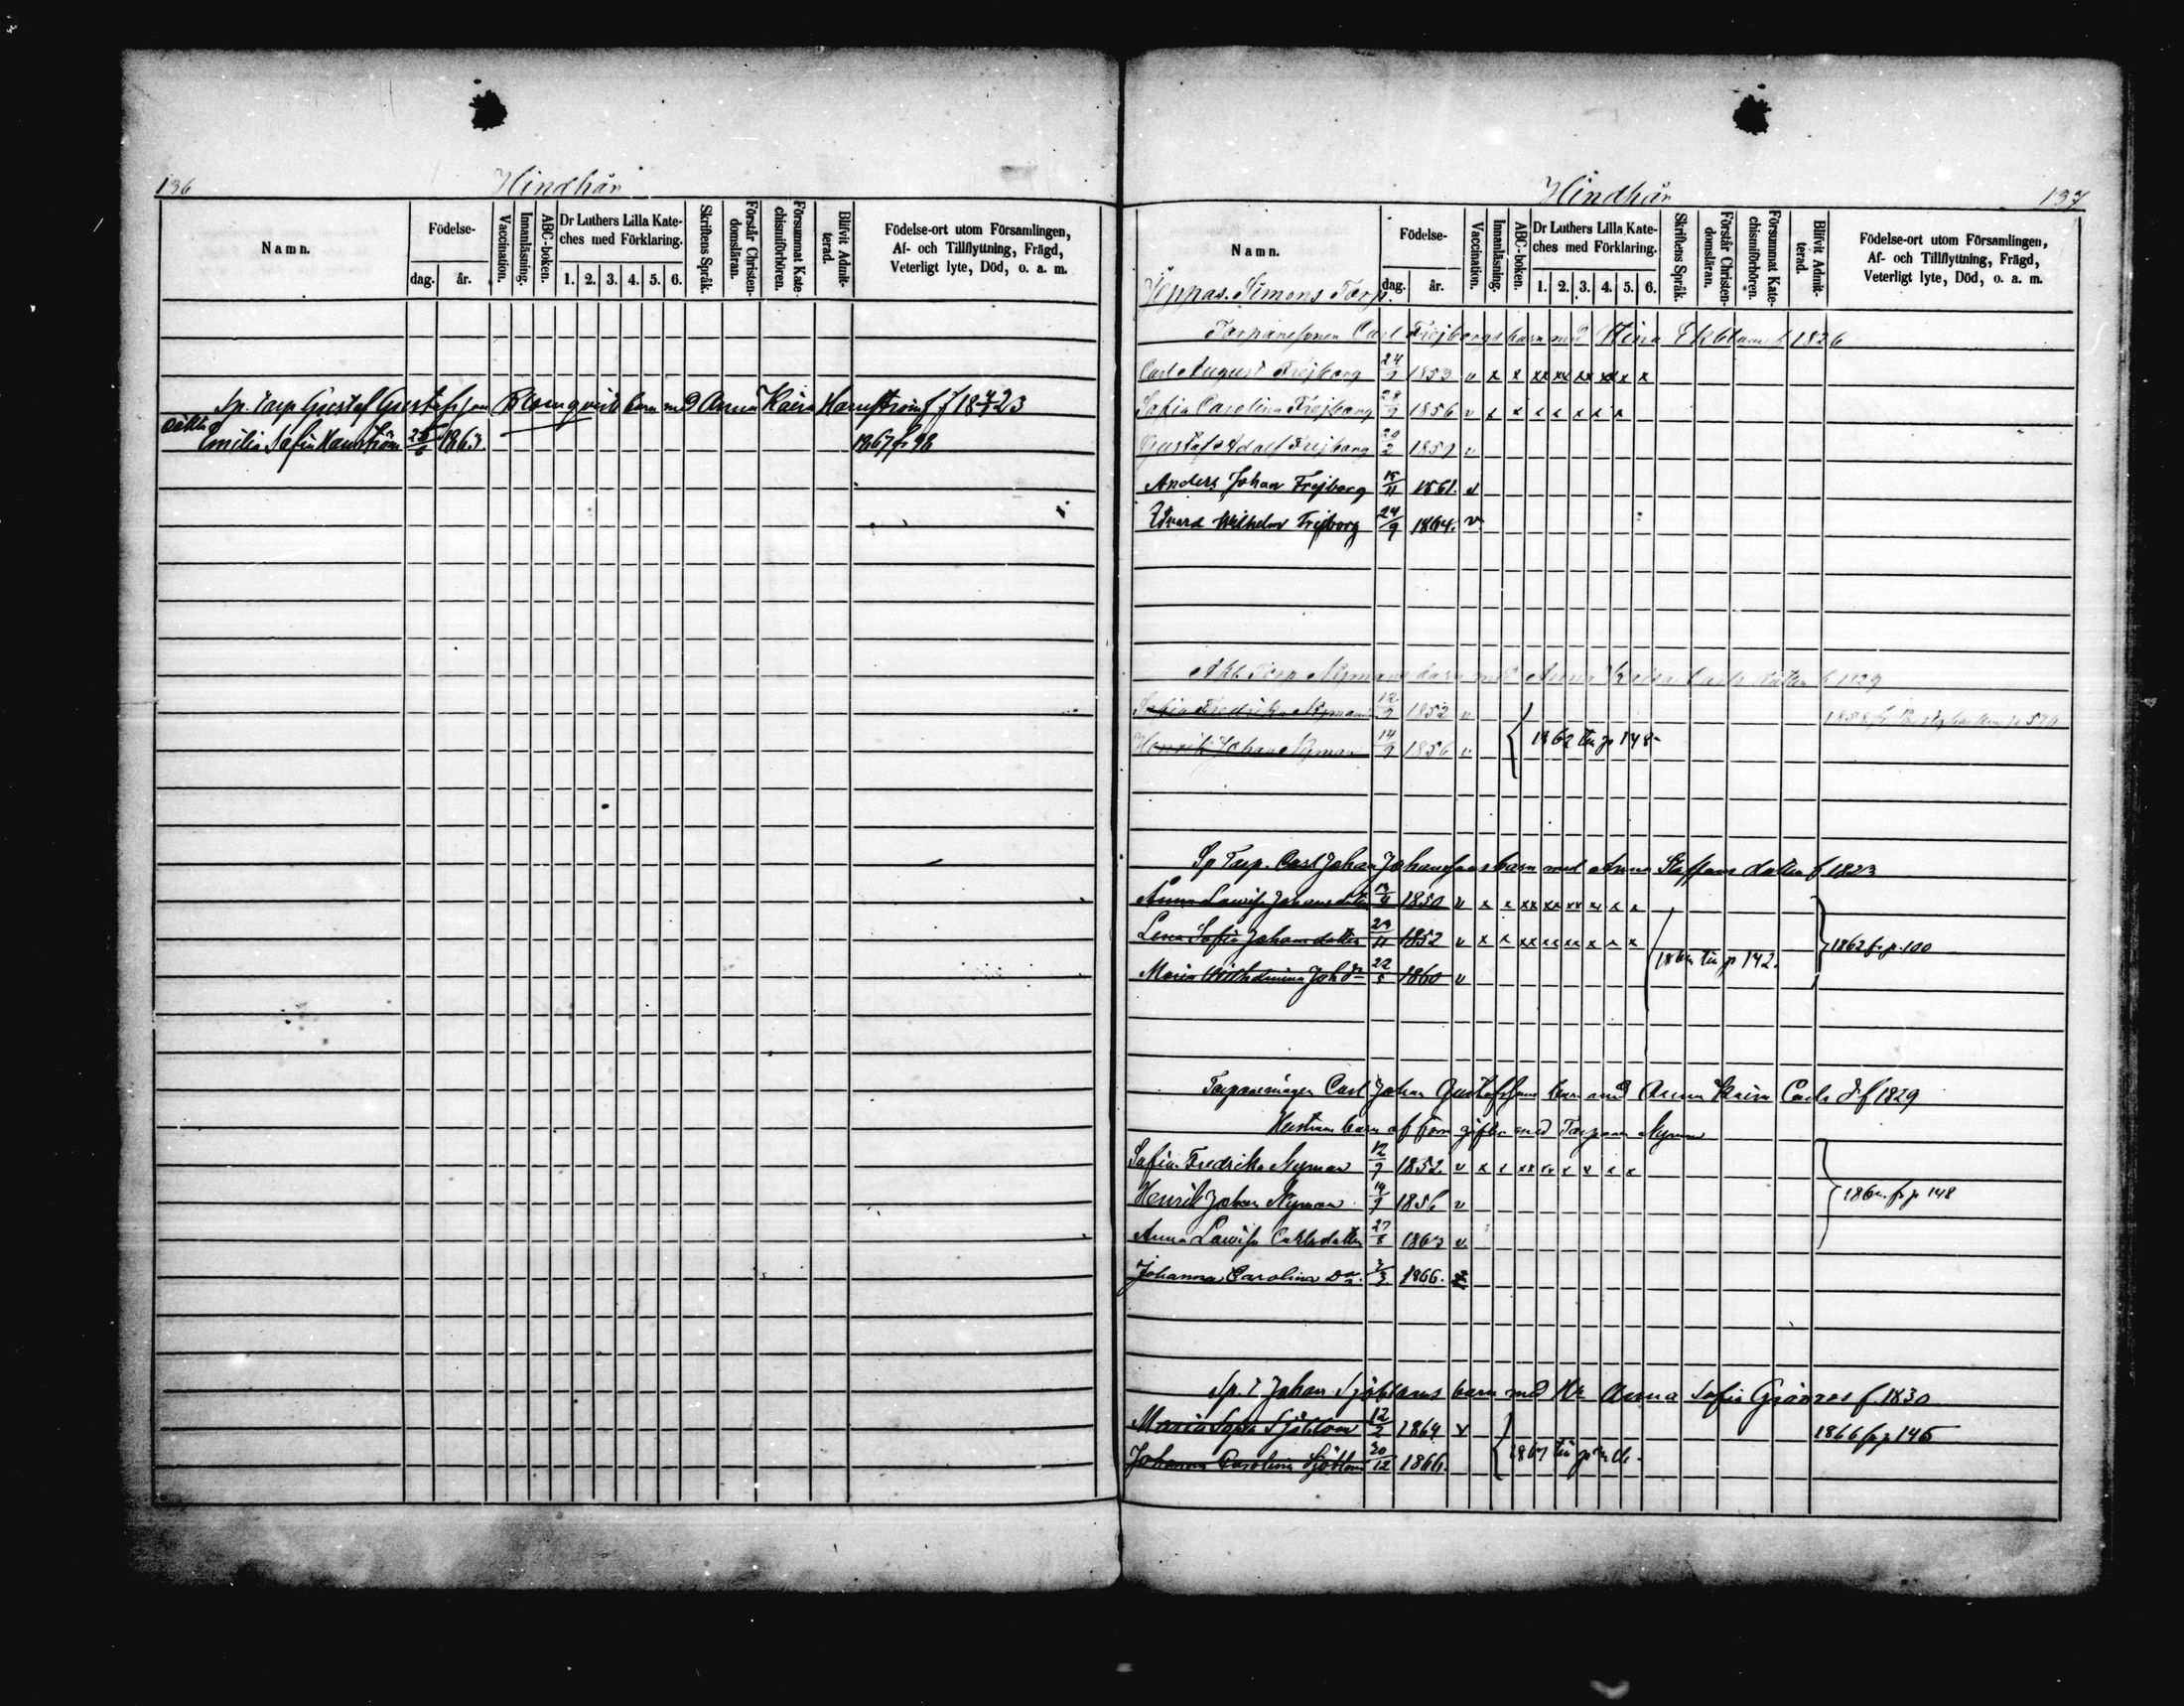 136 Hindhår
Namn. Födelse- dag. år. Vaccination. Innanläsning. ABC-boken. Dr Luthers Lilla Kateches med Förklaring. 1. 2. 3. 4. 5. 6. Skriftens Språk. Förstår Christendomsläran. Försummat Katechismiförhören. Blifvit Admitterad. Födelse-ort utom Församlingen, Af- och Tillflyttning, Frägd, Veterligt lyte, Död, o. a. m.
Sp. Torp Gustaf Gustafsson Blomqvist barn md Anna Kaisa
Emilia Sofia 1863. 1867 fr 98
Hindhår 137
Namn. Födelse- dag. år. Vaccination. Innanläsning. ABC-boken. Dr Luthers Lilla Kateches med Förklaring. 1. 2. 3. 4. 5. 6. Skriftens Språk. Förstår Christendomsläran. Försummat Katechismiförhören. Blifvit Admitterad. Födelse-ort utom Församlingen, Af- och Tillflyttning, Frägd, Veterligt lyte, Död, o. a. m.
Simons Torp.
Carl Frejbergs barn md Stina Ekblom f 1826
Carl August Frejberg 24/9 1853 v x x xx xx xx xx x x
Sofia Carolina Frejberg 28/9 1856 v x x x x x x x
Gustaf Adolf Frejberg 20/2 1859 v
Anders Johan Frejberg 15/11 1861. v
Edvard Wilhelm Frejberg 24/9 1864. v
Torp Nymans barn med Anna Kaisa Carls dotter f 1829
Sofia Fredrika Nyman 12/9 1852 v
Henrik Johan Nyman 14/9 1856 v 1862 till p 148
Sp Torp. Carl Johan Johanssons barn med Anna Staffans dotter f 1823
Anna Lovisa Johansdotter 1850 v x x xx xx xx x x x
Lena Sofia Johansdotter 29/11 1852 v x x xx xx xx x x x 1862 fr p. 100
Maria Wilhelmina Joh dr 22/5 1860 v till p 142.
Carl Johan Gustafssons barn md Anna Kaisa Carls d f 1829
Hustruns barn af förra giftet med Nyman
Sofia Fredrika Nyman 12/9 1852 v x x xx x x x x x
Henrik Johan Nyman 14/9 1856 v fr p 148
Anna Lovisa Carlsdotter 27/8 1863 v
Johanna Carolina Do 1866.
Sp. T Johan Sjöbloms barn md Hu Anna Sofia f. 1830
Maria Sofia Sjöblom 12/2 1864 v 1866 fr p 145
Johanna Carolina Sjöblom 30/12 1866. 1867 till p